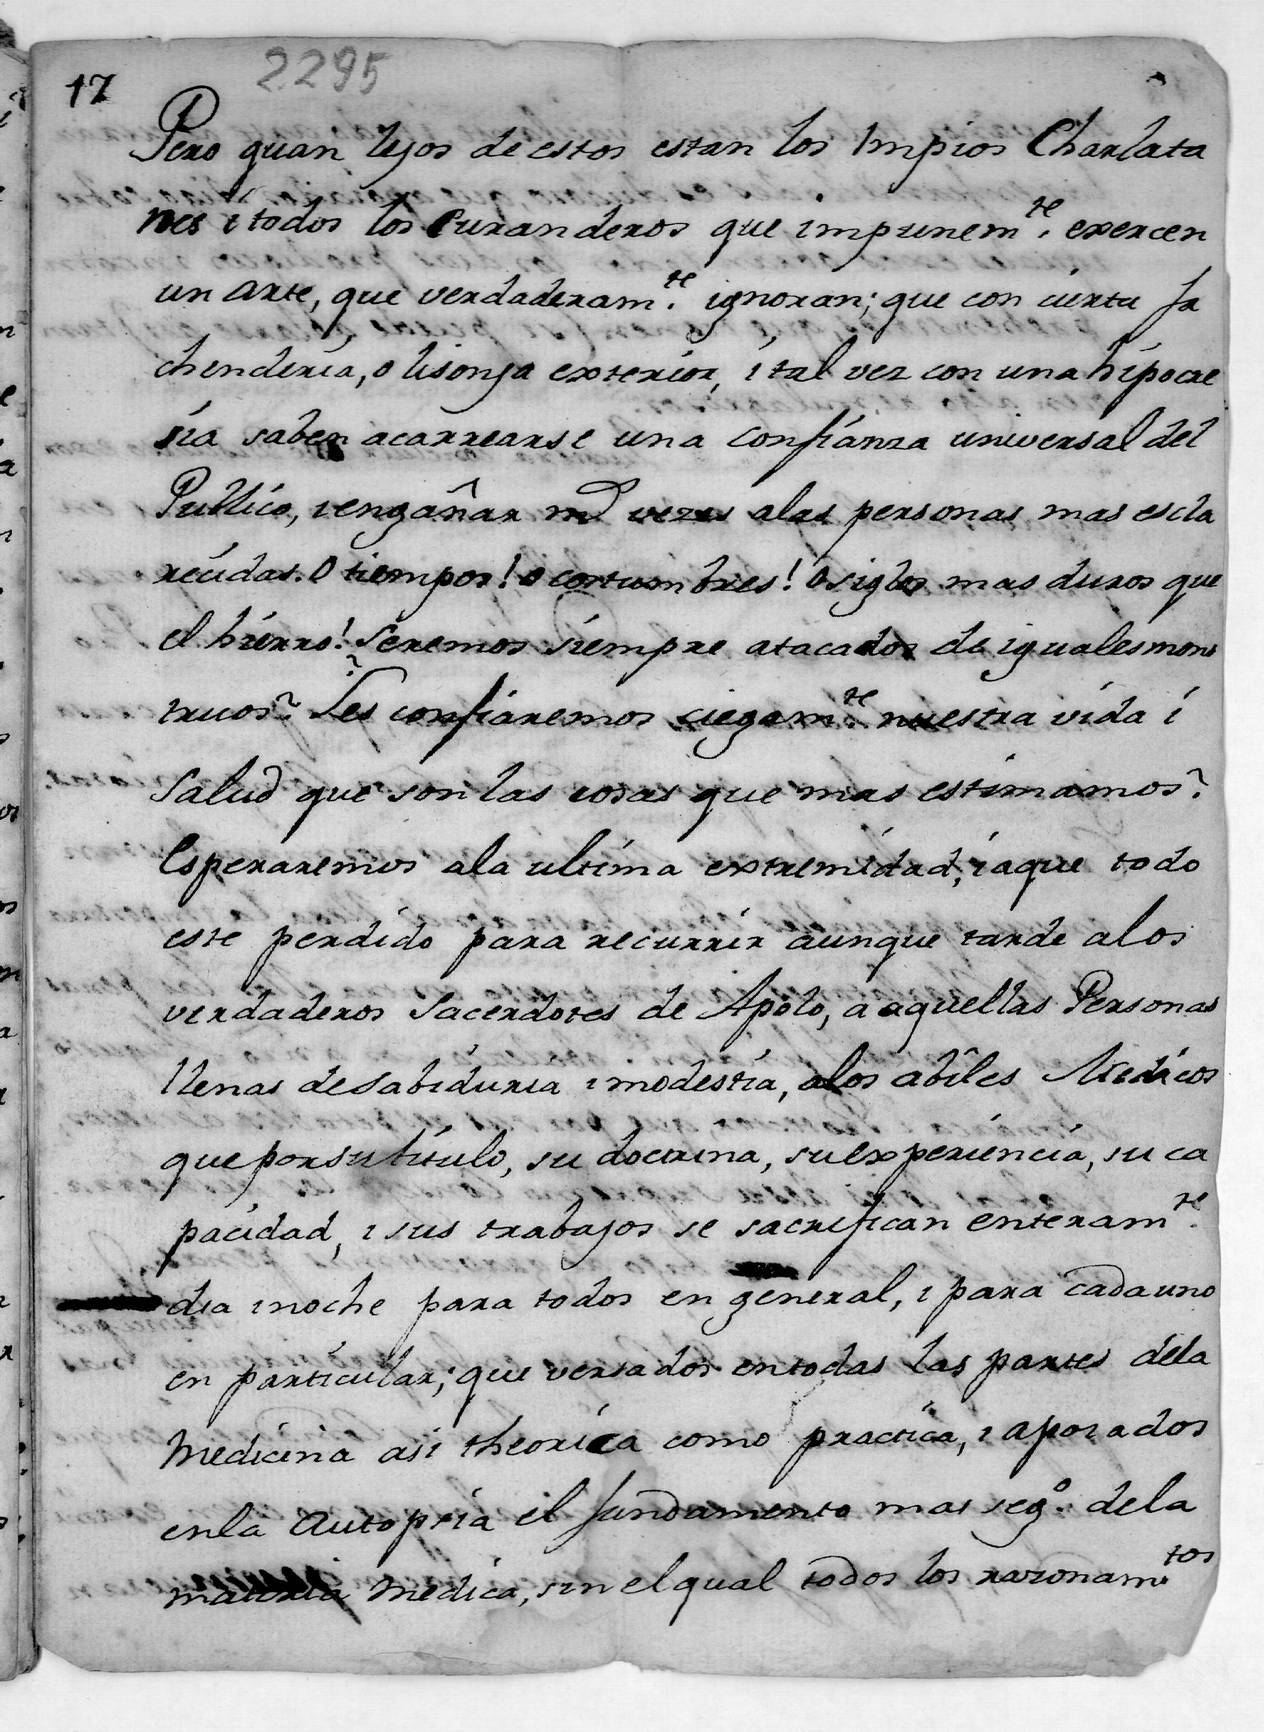 17
2295
Pero quan lejos de estos estan los Impios Charlata
nes i todos los Curanderos que impunem.te exercen
un arte, que verdaderam.te ignoran; que con cierta fa
chenderia, o lisonja exterior, i tal vez con una hipocre
sia saben acarrearse una confianza universal del
Publico, i engañar md vezes alas personas mas escla
recidas. O tiempos! o costumbres! o siglos mas duros que
el hierro! Seremos siempre atacados de iguales mons
truos? Les confiaremos ciegam.te nuestra vida i
Salud que son las cosas que mas estimamos?
Esperaremos ala ultima extremidad, i a que todo
este perdido para recurrir aunque tarde alos
verdaderos Sacerdotes de Apolo, a aquellas Personas
llenas de Sabiduria i modestia, alos abiles Medicos
que por su titulo, su doctrina, su experiencia, su ca
pacidad, i sus trabajos se sacrifican enteram.te
dia i noche para todos en general, i para cada uno
en particular; que versados en todas las partes dela
Medicina asi theorica como practica, i apoiados
enla Autopsia el fundamento mas seg.o dela
materia Medica, sin el qual todos los razonam.tos